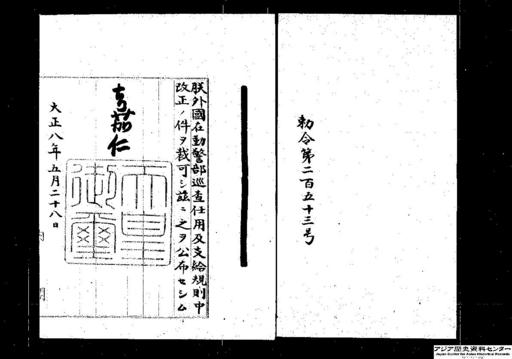 勅令第二百五十三号
朕外國在勤警部巡査任用及支給規則中
改正ノ件ヲ裁可シ茲ニ之ヲ公布セシム
嘉仁
天皇
御璽
大正八年五月二十八日
内
アジア歴史資料センター
Japan Center for Asian Historical Records